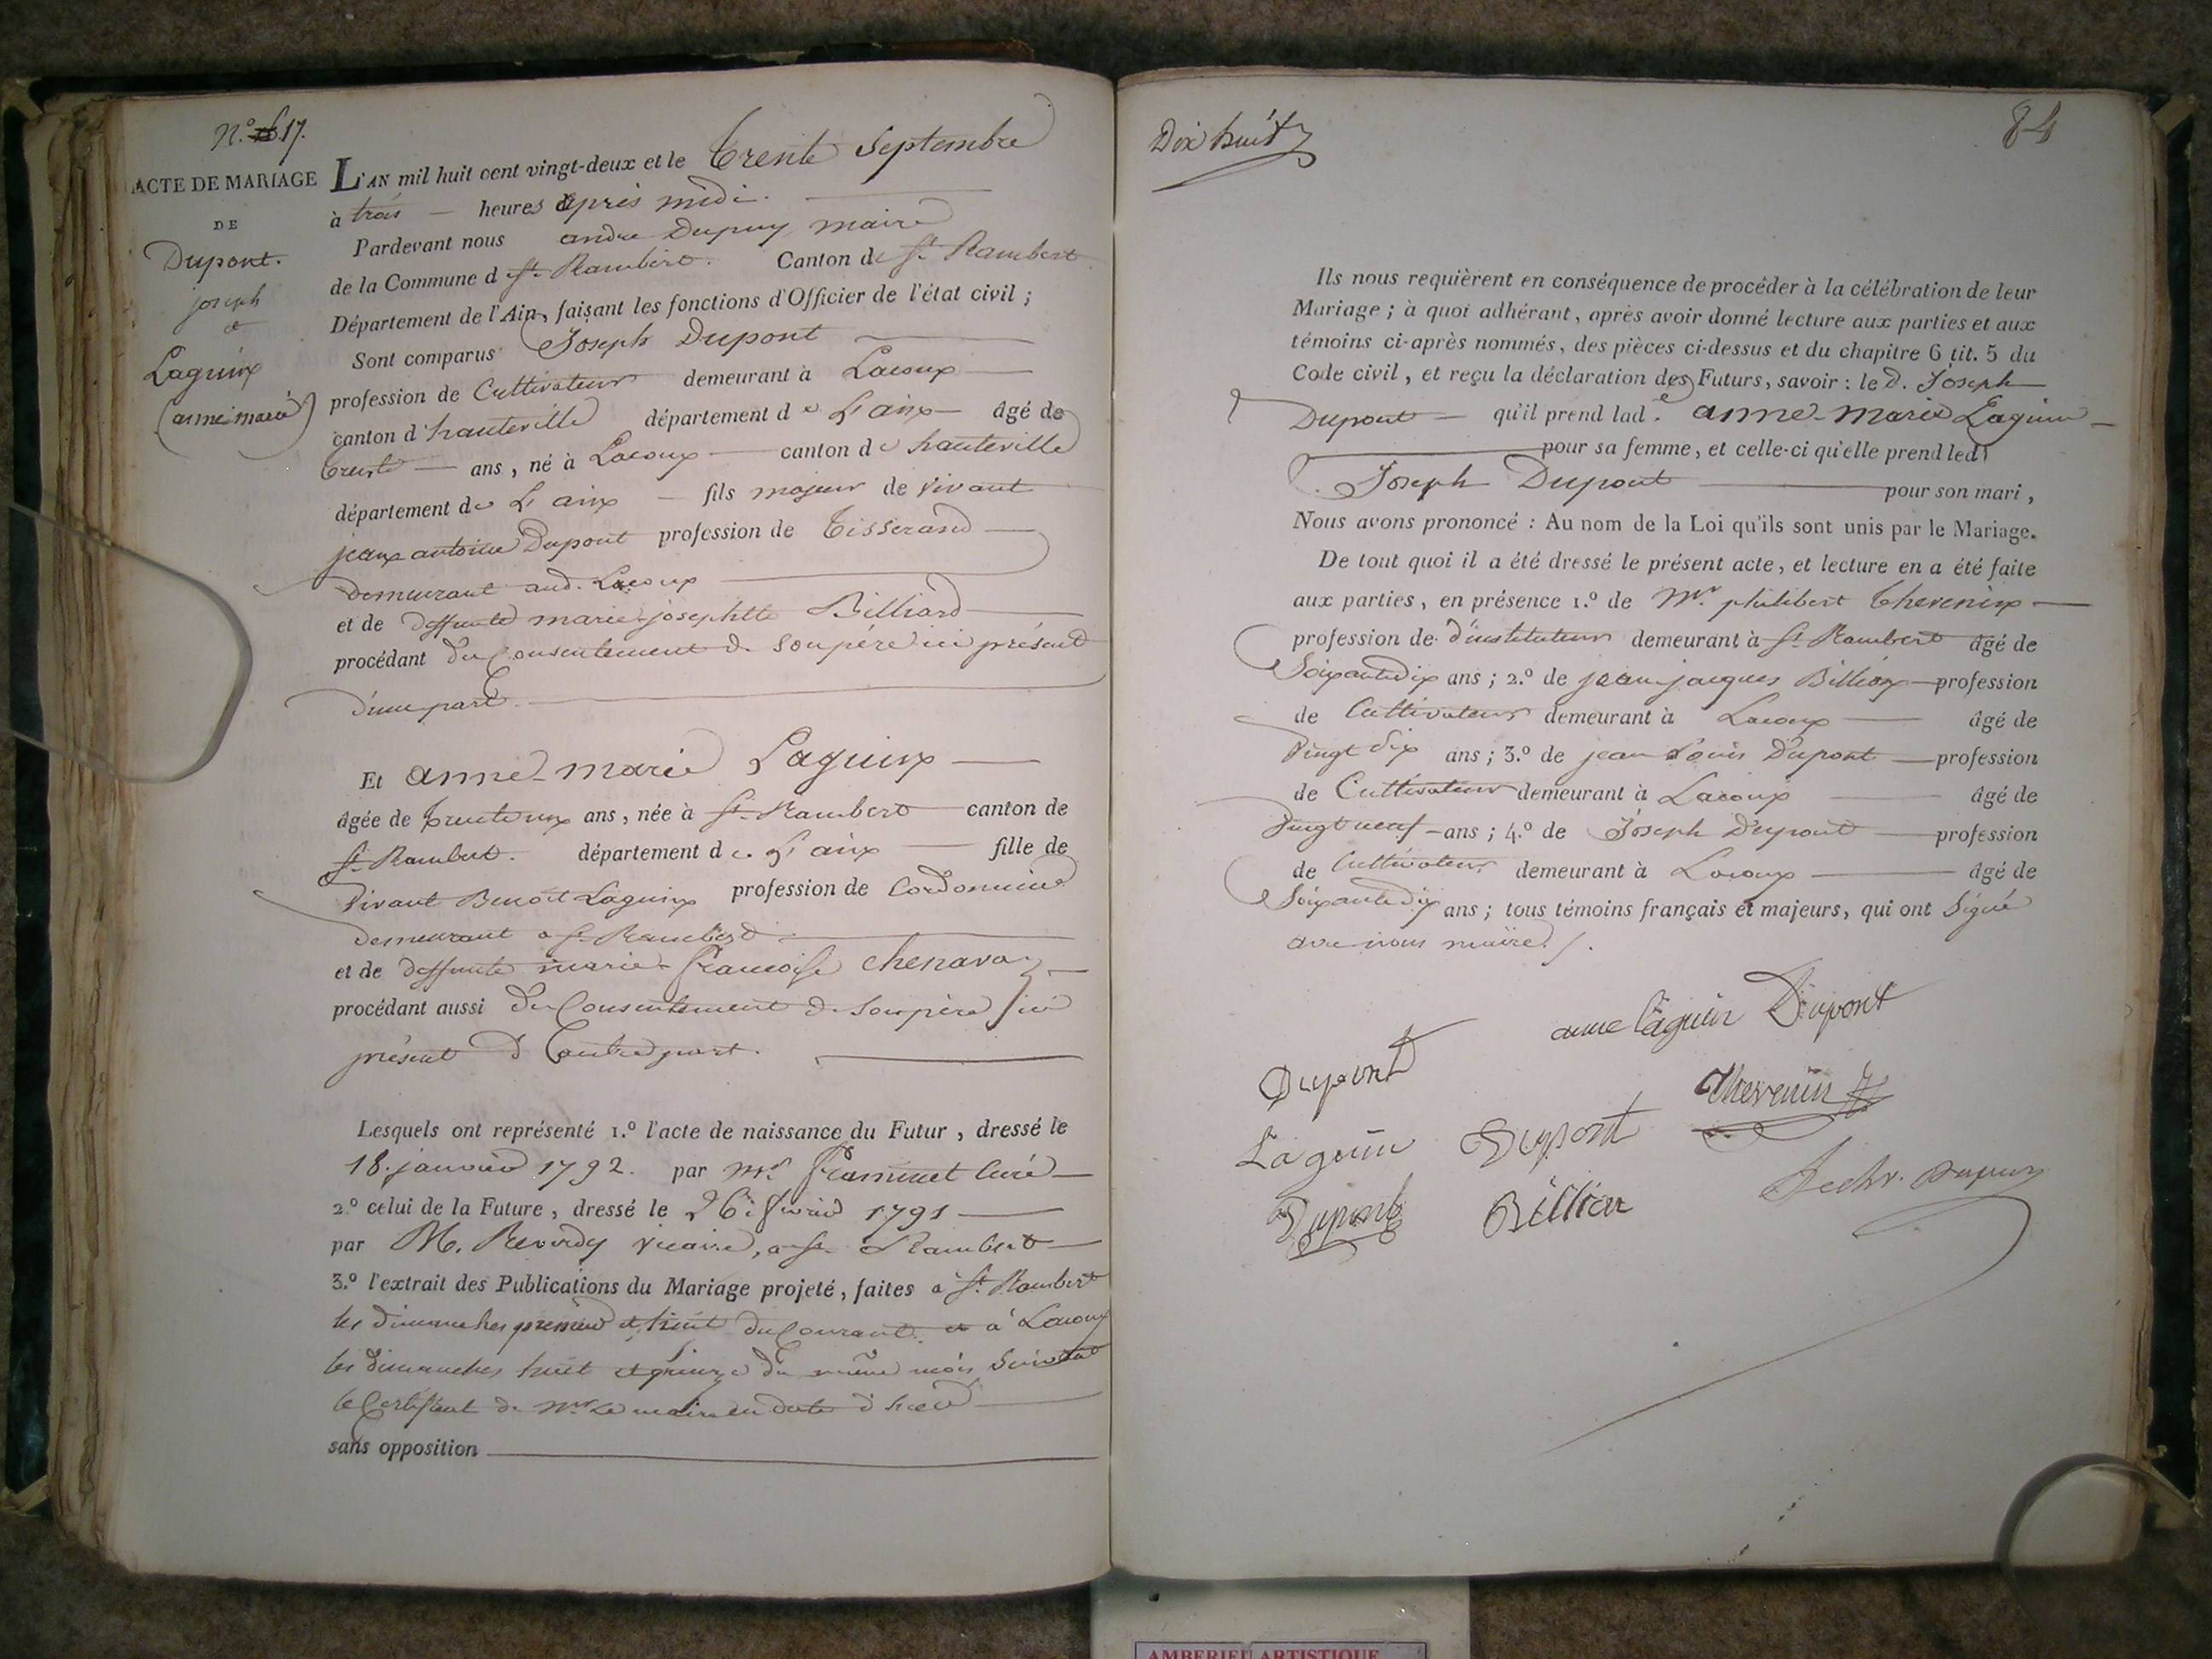 N.º 17.
ACTE DE MARIAGE
DE
Dupont.
joseph
et
Laguin
(anne marie)
L'AN mil huit cent vingt-deux et le trente Septembre
à trois — heures après midi.
Pardevant nous andre Dupuy maire
de la Commune de St. Rambert. Canton de St. Rambert
Département de l'Ain, faisant les fonctions d'Officier de l'état civil ;
Sont comparus Joseph Dupont
profession de Cultivateur demeurant à Lacoux
canton d'hauteville département de L'ain — âgé de
trente — ans, né à Lacoux — canton de hauteville
département de L'ain — fils majeur de vivant
jean antoine Dupont profession de tisserand —
demeurant aud. Lacoux
et de deffunte marie josephtte Billiard
procédant du Consentement de son père ici présent
d'une part.
Et anne-marie Laguin —
âgée de trente un ans, née à St. Rambert canton de
St. Rambert. département de L'ain — fille de
vivant Benoit Laguin profession de Cordonnier
demeurant a St. Rambert
et de deffunte marie françoise chenavaz
procédant aussi du Consentement de son père ici
présent d'autre part.
Lesquels ont représenté 1.º l'acte de naissance du Futur, dressé le
18. janvier 1792. par Mr. curé —
2.º celui de la Future, dressé le 26 février 1791 —
par M. Reverdy vicaire, a St. Rambert
3.º l'extrait des Publications du Mariage projeté, faites à St. Rambert
les dimanches premier et huit du Courant. et à Lacoux
les dimanches huit et quinze du même mois suivant
le Certificat de Mr. Le maire en date d'hier
sans opposition
Dix huit
84
Ils nous requièrent en conséquence de procéder à la célébration de leur
Mariage ; à quoi adhérant, après avoir donné lecture aux parties et aux
témoins ci-après nommés, des pièces ci-dessus et du chapitre 6 tit. 5 du
Code civil, et reçu la déclaration des Futurs, savoir : le d. Joseph
Dupont — qu'il prend lad.e anne-marie Laguin —
pour sa femme, et celle-ci qu'elle prend led.
Joseph Dupont — pour son mari,
Nous avons prononcé : Au nom de la Loi qu'ils sont unis par le Mariage.
De tout quoi il a été dressé le présent acte, et lecture en a été faite
aux parties, en présence 1.º de Mr. philibert thevenin —
profession de d'instituteur demeurant à St. Rambert âgé de
Soixante dix ans ; 2.º de jean-jacques Billion — profession
de Cultivateur demeurant à Lacoux — âgé de
Vingt dix ans ; 3.º de jean Louis Dupont — profession
de Cultivateur demeurant à Lacoux — âgé de
Vingt neuf — ans ; 4.º de Joseph Dupont — profession
de Cultivateur demeurant à Lacoux — âgé de
Soixante dix ans ; tous témoins français et majeurs, qui ont Signé
avec nous maire.
anne Laguin Dupont
Dupont
Thevenin
Laguin Dupont
Dupont Billion Dupuy
AMBERIEU ARTISTIQUE